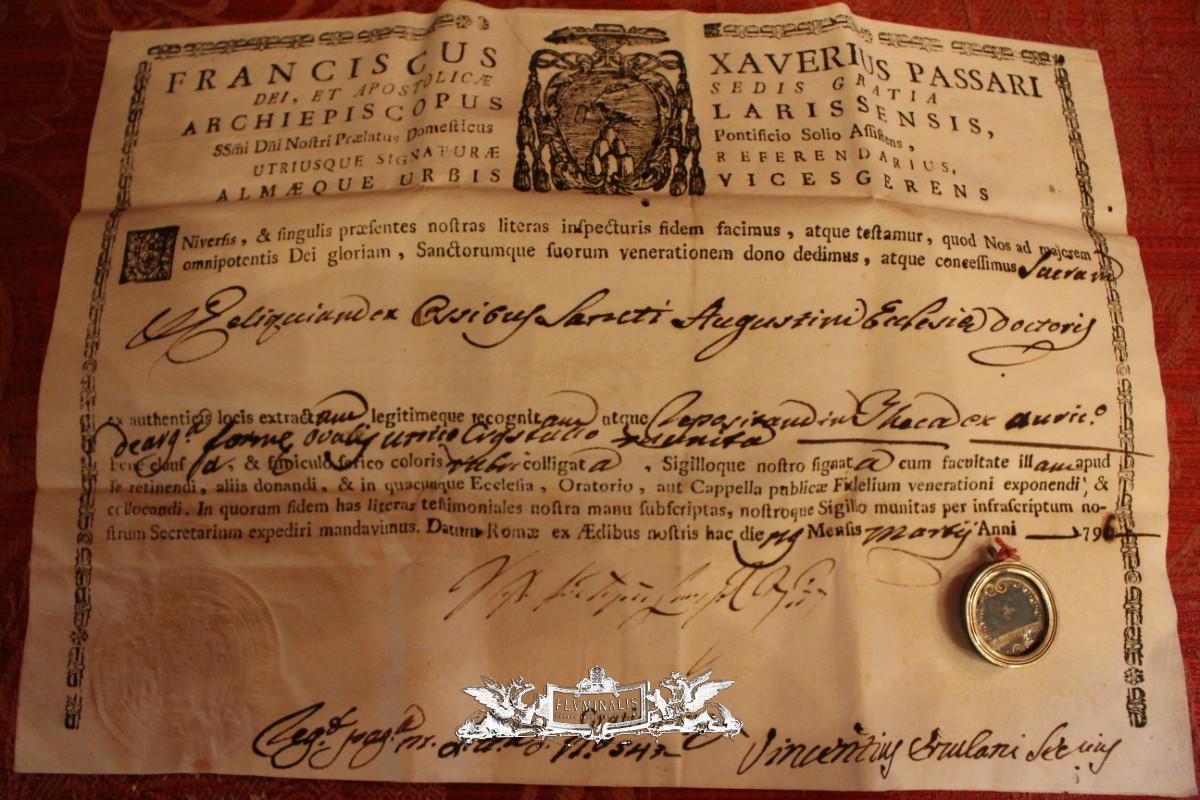 FRANCISCUS XAVERIUS PASSARI
DEI, ET APOSTOLICÆ SEDIS GRATIA
ARCHIEPISCOPUS LARISSENSIS,
SSm̃i Dñi Noſtri Prælatus Domeſticus Pontificio Solio Aſſiſtens,
UTRIUSQUE SIGNATURÆ REFERENDARIUS,
ALMÆQUE URBIS VICESGERENS
UNiverſis, & ſingulis præſentes noſtras literas inſpecturis fidem facimus, atque teſtamur, quod Nos ad majorem
omnipotentis Dei gloriam, Sanctorumque ſuorum venerationem dono dedimus, atque conceſſimus Sacram
Reliquiam ex Ossibus Sancti Augustini Eclesiæ Doctoris
ex authenticis locis extractam legitimeque recognitam atque reposi in Theca ex auric.º
de arg.º forme ovalis unico Crystallo munita
bene clauſa, & funiculo ſerico coloris rubri colligata, Sigilloque noſtro ſignata cum facultate illam apud
ſe retinendi, aliis donandi, & in quacunque Eccleſia, Oratorio, aut Cappella publicæ Fidelium venerationi exponendi, &
collocandi. In quorum fidem has literas teſtimoniales noſtra manu ſubſcriptas, noſtroque Sigillo munitas per infraſcriptum no-
ſtrum Secretarium expediri mandavimus. Datum Romæ ex Ædibus noſtris hac die 19 Menſis Martij Anni 1796
FLVMINALIS
Reg.
Vincentius Secrius